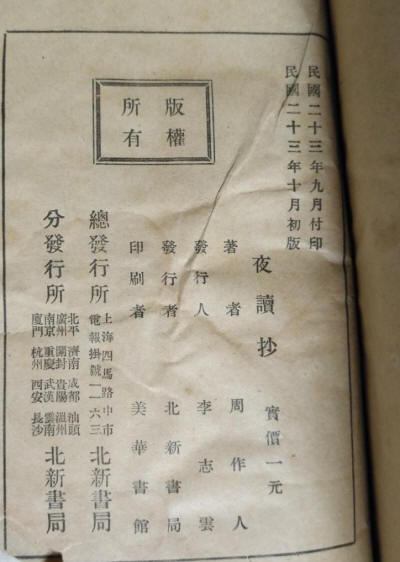 民國二十三年九月付印
民國二十三年十月初版
版權
所有
夜讀抄
實價一元
著者 周作人
發行人 李志雲
發行者 北新書局
印刷者 美華書館
總發行所 上海四馬路中市
電報掛號一一六三 北新書局
分發行所 北平 濟南 成都 汕頭
廣州 開封 貴陽 溫州
南京 重慶 武漢 雲南
廈門 杭州 西安 長沙
北新書局